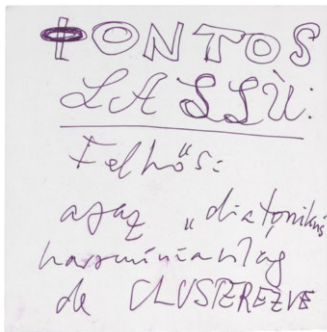 FONTOS
LASSÙ:
Felhős:
azaz „diatonikus
harmóniavilág
de CLUSTEREZVE